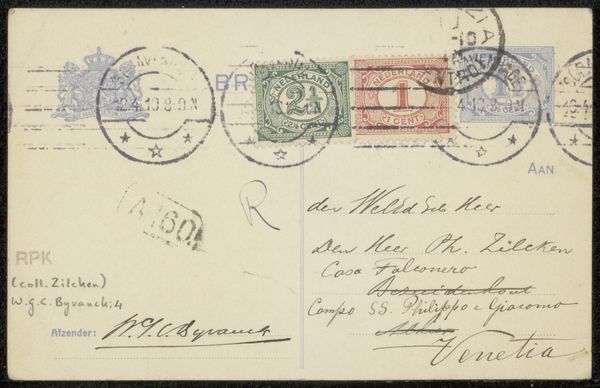 BR
AAN
12.4.19 8-9.N
NEDERLAND
2½
(2½ CENT)
NEDERLAND
1
(1 CENT)
A 160
R
RPK
(coll. Zilcken)
W.G.C. Byvanck: 4
Afzender: W.G.C. Byvanck
den WelEd Geb Heer
Den Heer Ph. Zilcken
Casa Falconero
Bezuidenhout
Campo SS. Philippo e Giacomo
Venetia